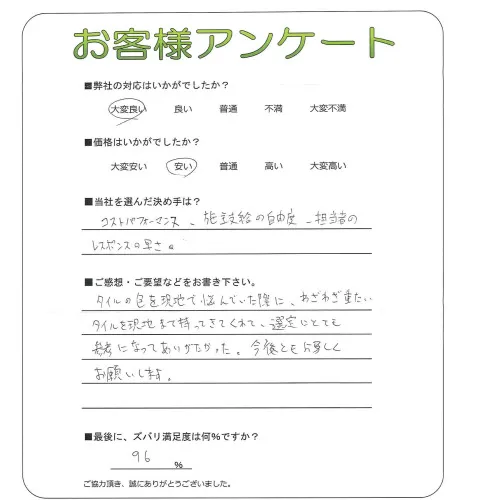 お客様アンケート
■弊社の対応はいかがでしたか？
大変良い 良い 普通 不満 大変不満
■価格はいかがでしたか？
大変安い 安い 普通 高い 大変高い
■当社を選んだ決め手は？
コストパフォーマンス、施主支給の自由度、担当者の
レスポンスの早さ。
■ご感想・ご要望などをお書き下さい。
タイルの色を現地で悩んでいた際に、わざわざ重たい
タイルを現地まで持ってきてくれて、選定にとても
参考になってありがたかった。今後とも宜しく
お願いします。
■最後に、ズバリ満足度は何％ですか？
96 ％
ご協力頂き、誠にありがとうございました。